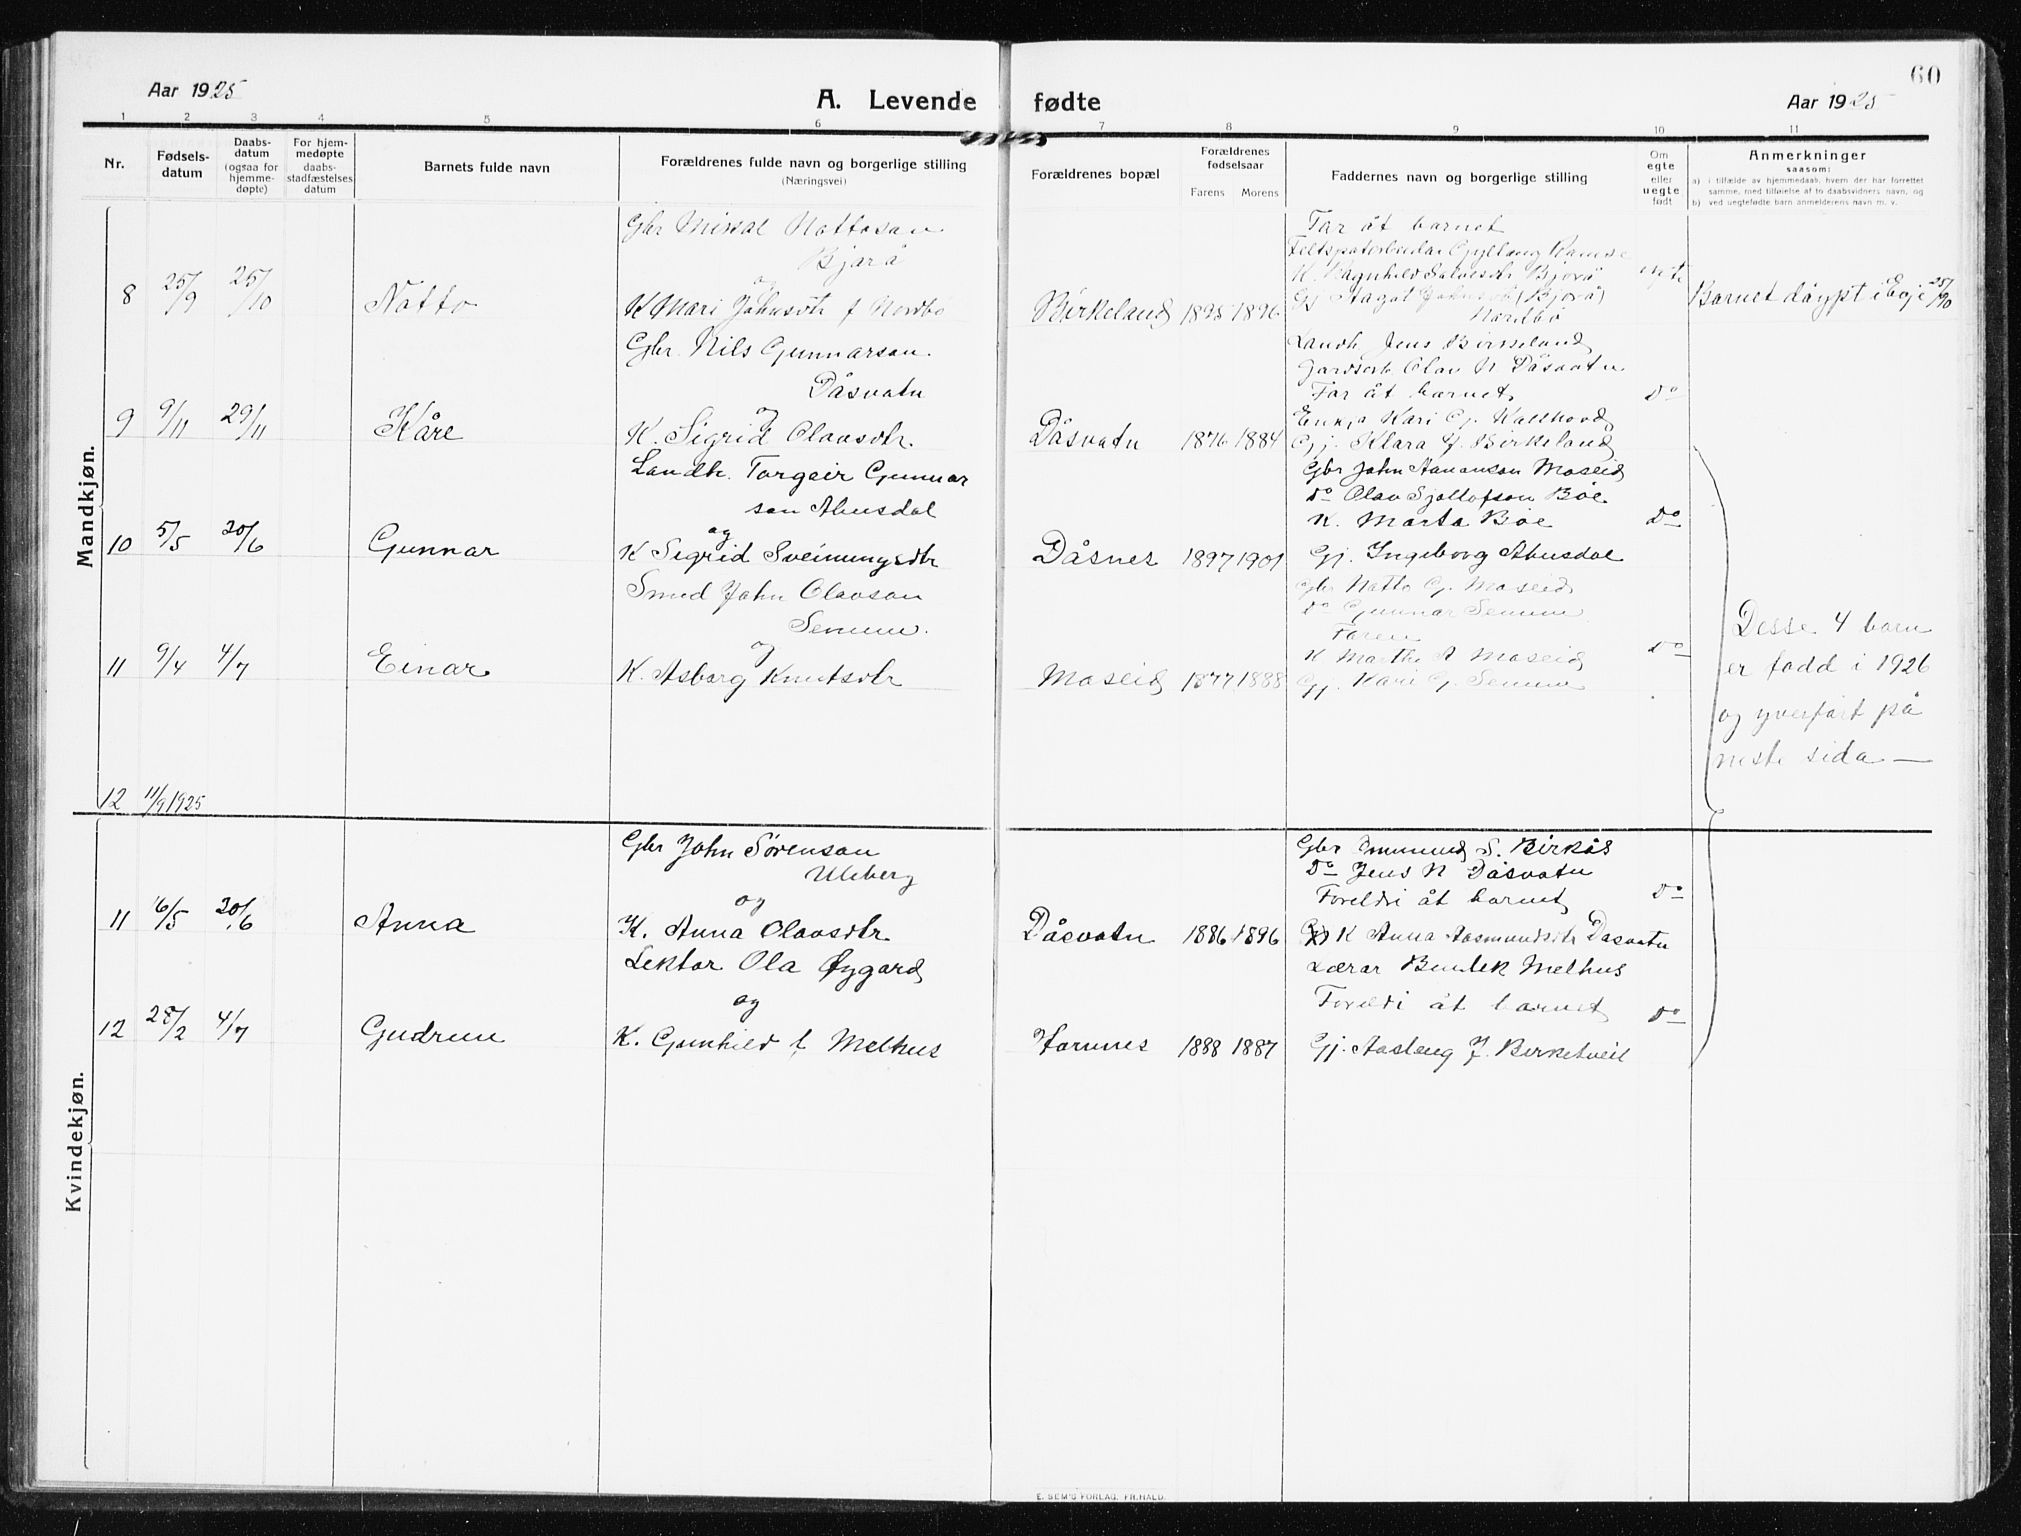 Aar 1925
A. Levende fødte
Aar 1925
60
1 2 3 4 5 6 7 8 9 10 11
Nr.
Fødsels-
datum
Daabs-
datum
(ogsaa for
hjemme-
døpte)
For hjem-
medøpte
daabs-
stadfæstelses
datum
Barnets fulde navn
Forældrenes fulde navn og borgerlige stilling
(Næringsvei)
Forældrenes bopæl
Forældrenes
fødselsaar
Farens Morens
Faddernes navn og borgerlige stilling
Om
egte
eller
uegte
født
Anmerkninger
saasom:
a) i tilfælde av hjemmedaab, hvem der har forrettet
samme, med tilføielse af to daabsvidners navn, og
b) ved uegtefødte barn anmelderens navn m. v.
Mandkjøn.
8 25/9 25/10 Natto
Gbr Nattoson
Bjorå
og
K Mari Johnsdtr f Nordbø
Birkeland 1895 1896
Far åt barnet
K. Ragnhild Bjorå
Gj (Bjorå)
Nordbø
egte
Barnet døypt i Evje 25/10
9 9/11 29/11 Kåre
Gbr. Nils Gunnarson
Dåsvatn
og
K. Sigrid Olavsdtr.
Dåsvatn 1876 1884
Landh. Jens Birkeland
Olav N Dåsvatn
Far åt barnet
Enkja Kari Gj.
Gj. Klara J. Birkeland
Do
10 5/5 20/6 Gunnar
Landh. Torgeir Gunnar
son Ahusdal
og
K Sigrid Sveinungsdtr
Dåsnes 1897 1901
Gbr John Aanonson Moseid
Do Olav Gjallofson Bøe
K. Marta Bøe
Gj. Ingeborg Ahusdal
Do
11 9/4 4/7 Einar
Smed John Olavson
Senum.
og
K. Asborg Knutsdtr
Moseid 1877 1888
Gbr Natto G. Moseid
Do Gunnar Senum
Faren
K Marthe A Moseid
Gj. Kari G. Senum
Do
Desse 4 born
er fødd i 1926
og yverført på
neste sida —
12 11/9 1925
Kvindekjøn.
11 16/5 20/6 Anna
Gbr John Sørenson
Uleberg
og
K. Anna Olavsdtr
Dåsvatn 1886 1896
Gbr Ommund S. Birkås
Do Jens N Dåsvatn
Foreldri åt barnet
K Anna Aasmundsdtr Dåsvatn
Do
12 28/2 4/7 Gudrun
Lektor Ola Øygard
og
K. Gunhild f Melhus
Hornnes 1888 1887
Lærar Bendek Melhus
Foreldri åt barnet
Gj. Aaslaug J. Birketveit
Do
E. SEM'S FORLAG. FR.HALD.